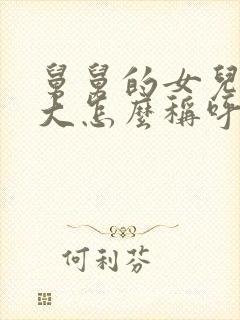 舅舅的女兒
大怎麼稱呼
何利芬